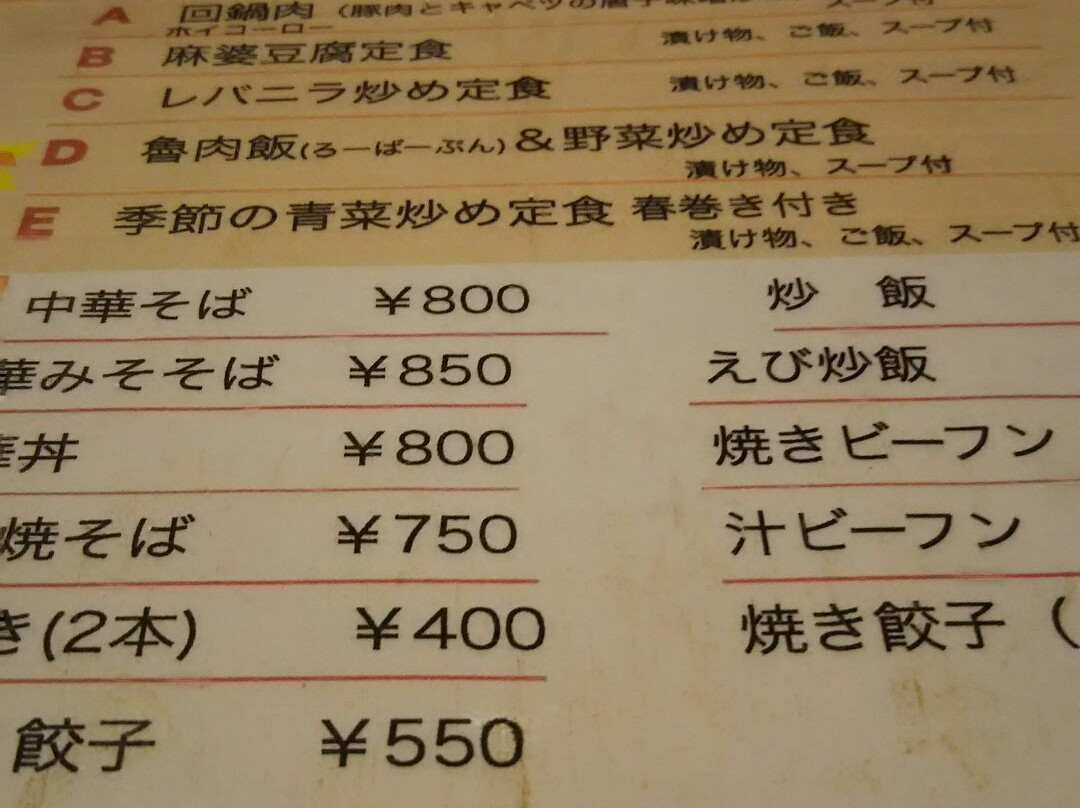 A 回鍋肉 (豚肉とキャベツの唐辛味噌
ホイコーロー スープ付
B 麻婆豆腐定食 漬け物、ご飯、スープ付
C レバニラ炒め定食 漬け物、ご飯、スープ付
D 魯肉飯(ろーばーぷん)&野菜炒め定食
漬け物、スープ付
E 季節の青菜炒め定食 春巻き付き
漬け物、ご飯、スープ付
中華そば ¥800 炒 飯
華みそそば ¥850 えび炒飯
華丼 ¥800 焼きビーフン
焼そば ¥750 汁ビーフン
き(2本) ¥400 焼き餃子 (
餃子 ¥550